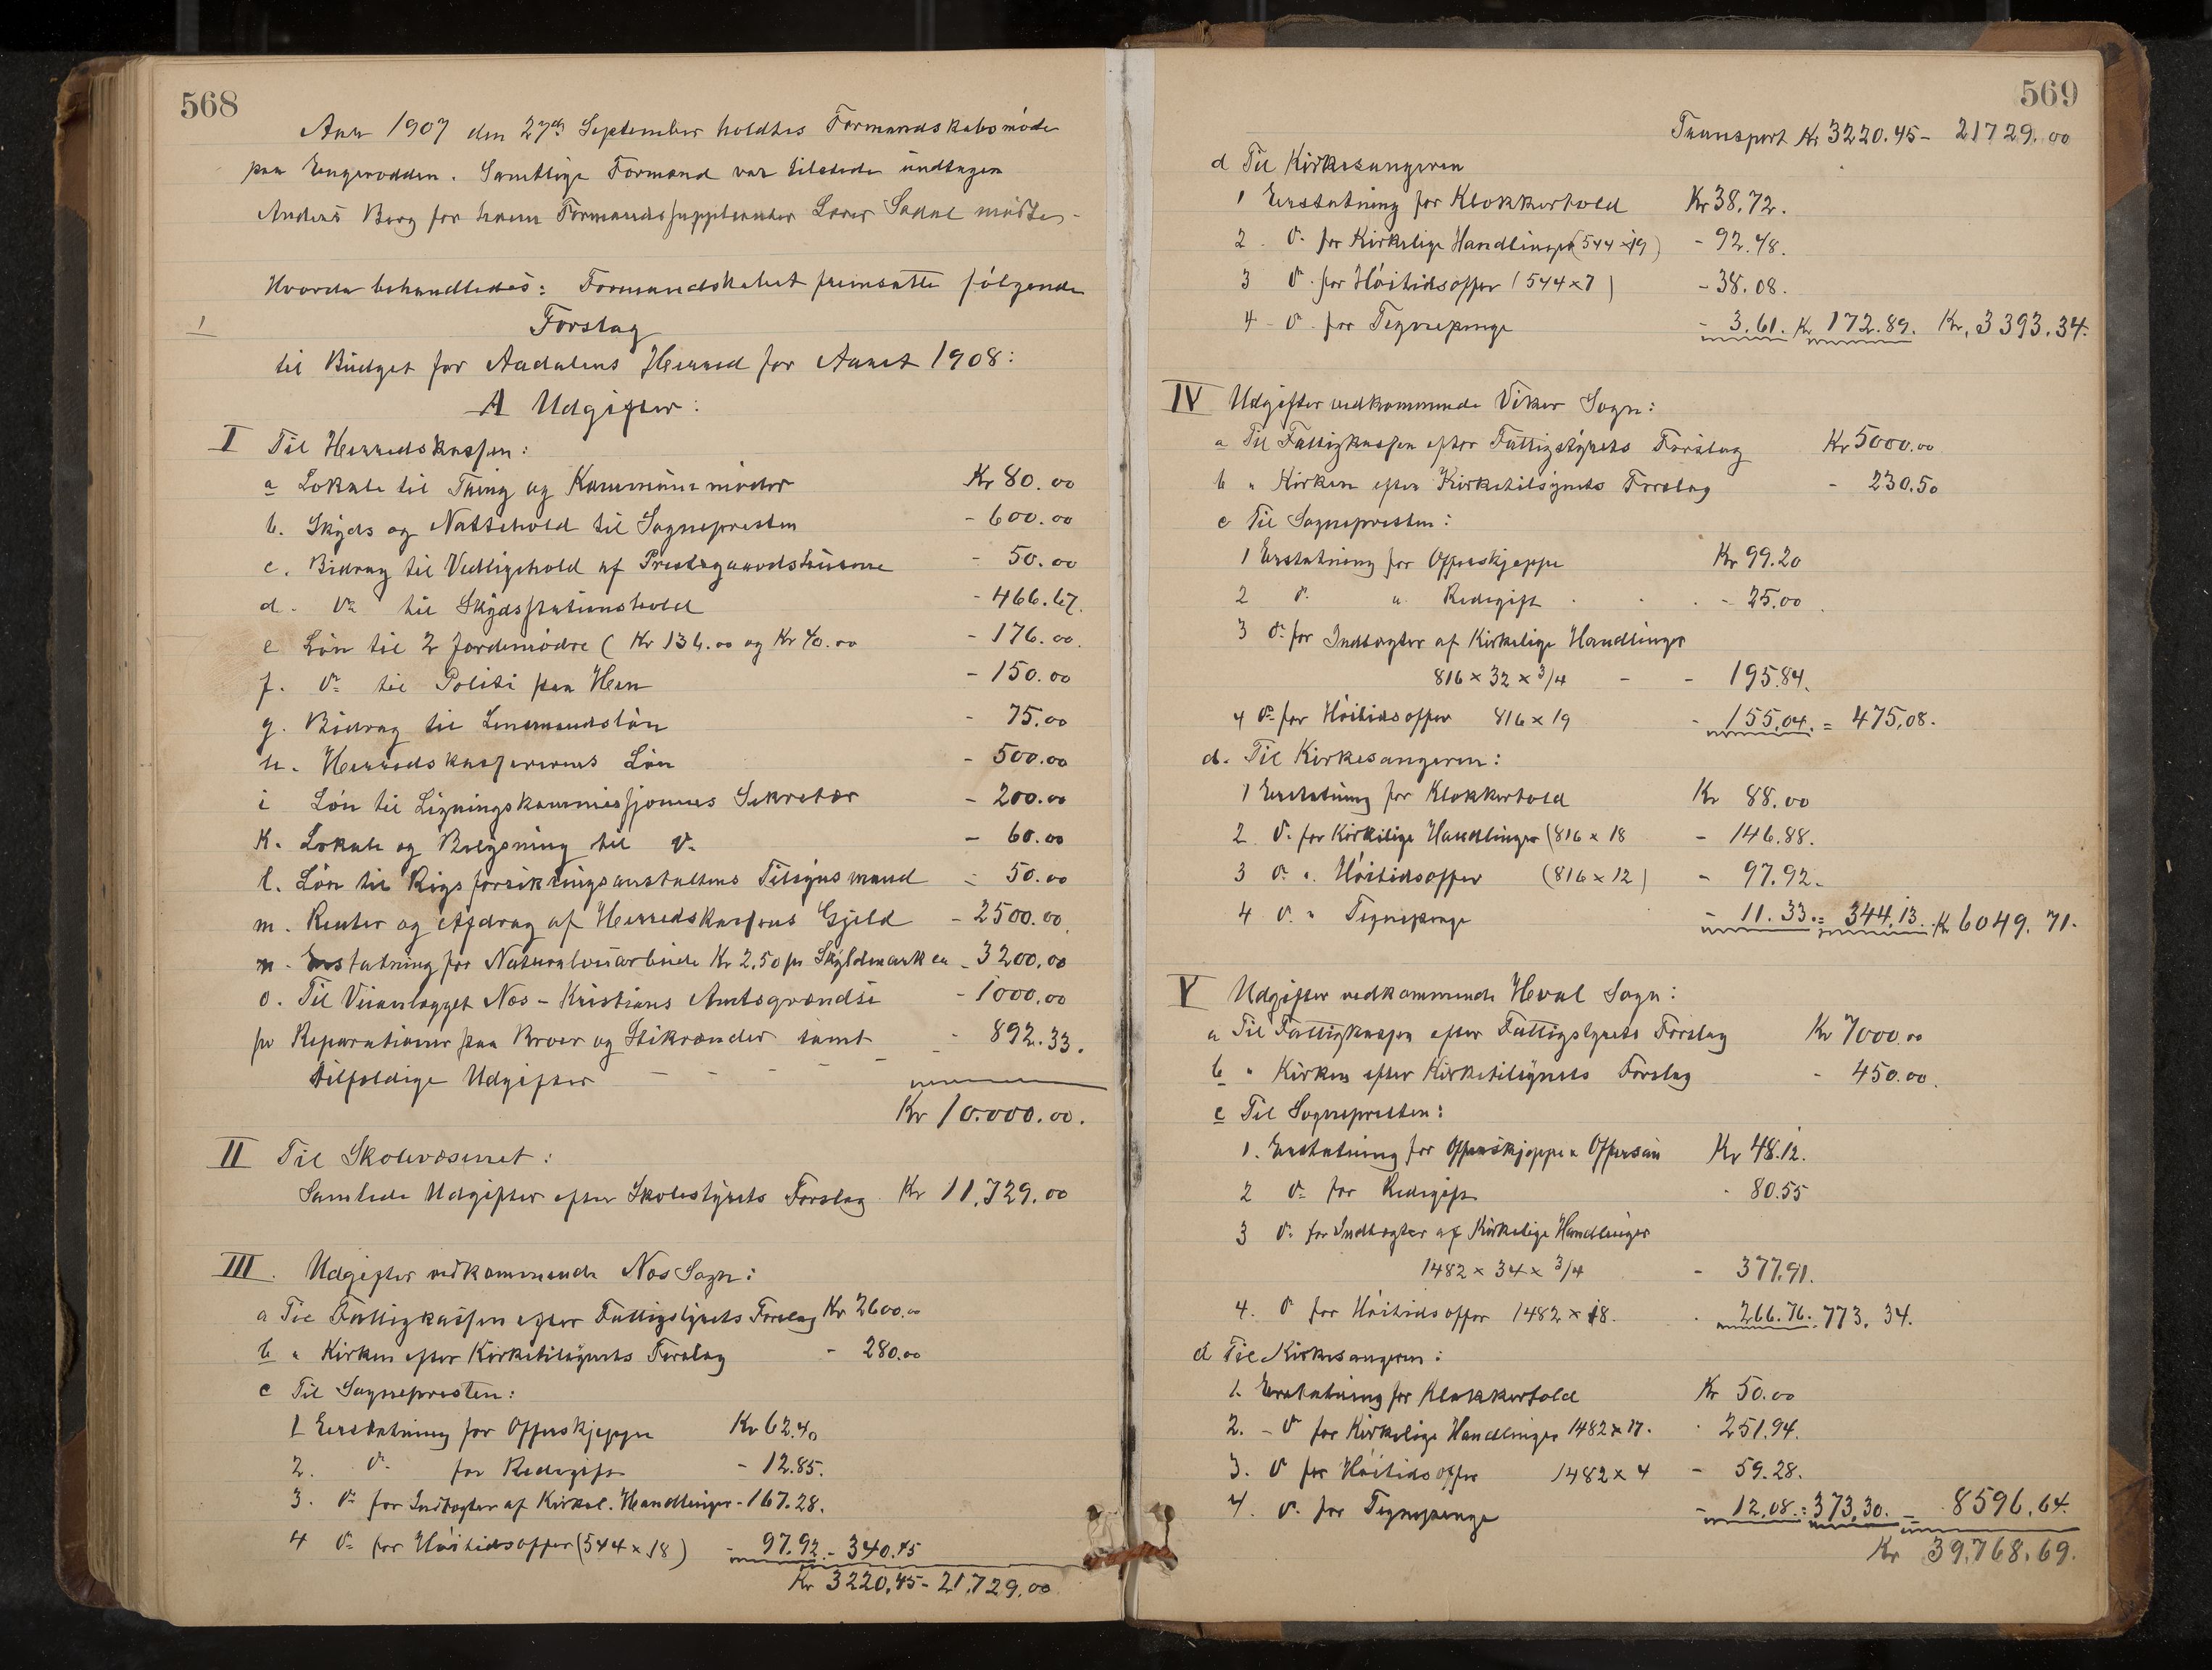 568
Aar 1907 den 27de September holdtes Formandskabsmöde
paa Engerodden. Samtlige Formænd var tilstede undtagen
Anders Berg for hvem Formandssuppleanten Lars Sadal mödte.
Hvorda behandledes: Formandskabet fremsatte fölgende
1
Forslag
til Budget for Aadalens Herred for Aaret 1908:
A Udgifter:
I Til Herredskassen:
a Lokale til Thing og Kommunemöder Kr 80.00
b. Skyds og Nattehold til Sognepresten - 600.00
c. Bidrag til Vedligehold af Prestegaardshusene - 50.00
d. Do til Skydsstationshold - 466.67.
e Lön til 2 Jordemödre ( Kr 136.00 og Kr 40.00 - 176.00.
f. Do til Politi paa Hen - 150.00
g. Bidrag til Lensmandslön - 75.00
h. Herredskassererens Lön - 500.00
i Lön til Ligningskommissjonens Sekretær - 200.00
k. Lokale og Belysning til Do - 60.00
l. Lön til Rigsforsikringsanstaltens Tilsynsmand - 50.00
m. Renter og Afdrag af Herredskassens Gjeld - 2500.00.
n. Erstatning for Naturalveiarbeide Kr 2.50 pr Skyldmark ca - 3200.00
o. Til Veianlægget Næs - Kristians Amtsgrændse - 1000.00
p Reparationer paa Broer og Stikrænder samt - 892.33.
tilfeldige Udgifter - - - - -
Kr 10.000.00.
II Til Skolevæsenet:
Samlede Udgifter efter Skolestyrets Forslag Kr 11,729.00
III. Udgifter vedkommende Næs Sogn:
a Til Fattigkassen efter Fattigstyrets Forslag Kr 2600.00
b " Kirken efter Kirketilsynets Forslag - 280.00
c Til Sognepresten:
1 Erstatning for Offerskjeppe Kr 62.40
2. Do for Redegift - 12.85.
3. Do for Indtægter af Kirkel. Handlinger - 167.28.
4 Do for Höitidsoffer (544 x 18) - 97.92. - 340.45
Kr 3220.45 - 21,729.00
569
Transport Kr 3220.45 - 21729.00
d Til Kirkesangeren
1 Erstatning for Klokkertold Kr 38.72.
2. Do for Kirkelige Handlinger (544 x 19) - 92.48.
3 Do for Höitidsoffer (544 x 7) - 38.08.
4 - Do for Tegnepenge - 3.61. Kr 172.89. Kr. 3393.34.
IV Udgifter vedkommende Viker Sogn:
a Til Fattigkassen efter Fattigstyrets Forslag Kr 5000.00
b " Kirken efter Kirketilsynets Forslag - 230.50
c Til Sognepresten:
1 Erstatning for Offerskjeppe Kr 99.20
2 Do " Redegift - 25.00.
3 Do for Indtægter af Kirkelige Handlinger
816 x 32 x 3/4 - - 195.84.
4 Do for Höitidsoffer 816 x 19 - 155.04. = 475.08.
d. Til Kirkesangeren:
1 Erstatning for Klokkertold Kr 88.00
2 Do for Kirkelige Handlinger (816 x 18 - 146.88.
3 Do " Höitidsoffer (816 x 12) - 97.92.
4 Do " Tegnepenge - 11.33. = 344.13. Kr 6049.71.
V Udgifter vedkommende Heval Sogn:
a Til Fattigkassen efter Fattigstyrets Forslag Kr 7000.00
b " Kirken efter Kirketilsynets Forslag - 450.00.
c Til Sognepresten:
1. Erstatning for Offerskjeppe & Offerscin Kr 48.12.
2 Do for Redegift - 80.55
3 Do for Indtægter af Kirkelige Handlinger
1482 x 34 x 3/4 - 377.91.
4. Do for Höitidsoffer 1482 x 18. - 266.76. 773.34.
d Til Kirkesangeren:
1. Erstatning for Klokkertold Kr 50.00
2. - Do for Kirkelige Handlinger 1482 x 17. - 251.94.
3. Do for Höitidsoffer 1482 x 4 - 59.28.
4. Do for Tegnepenge - 12.08. = 373.30. = 8596.64.
Kr 39.768.69.